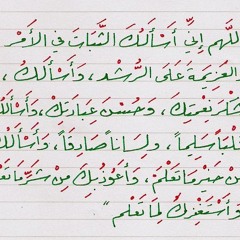 اللهم إنِّي أَسْأَلُكَ الثَّبَاتَ فِي الأَمْرِ
العَزِيمَةَ عَلَى الرُّشْدِ، وَأَسْأَلُكَ
شُكْرَ نِعْمَتِكَ، وَحُسْنَ عِبَادَتِكَ، وَأَسْأَلُكَ
قَلْبًا سَلِيمًا، وَلِسَانًا صَادِقًا، وَأَسْأَلُكَ
مِنْ خَيْرِ مَا تَعْلَمُ، وَأَعُوذُ بِكَ مِنْ شَرِّ مَا
وَأَسْتَغْفِرُكَ لِمَا تَعْلَم"